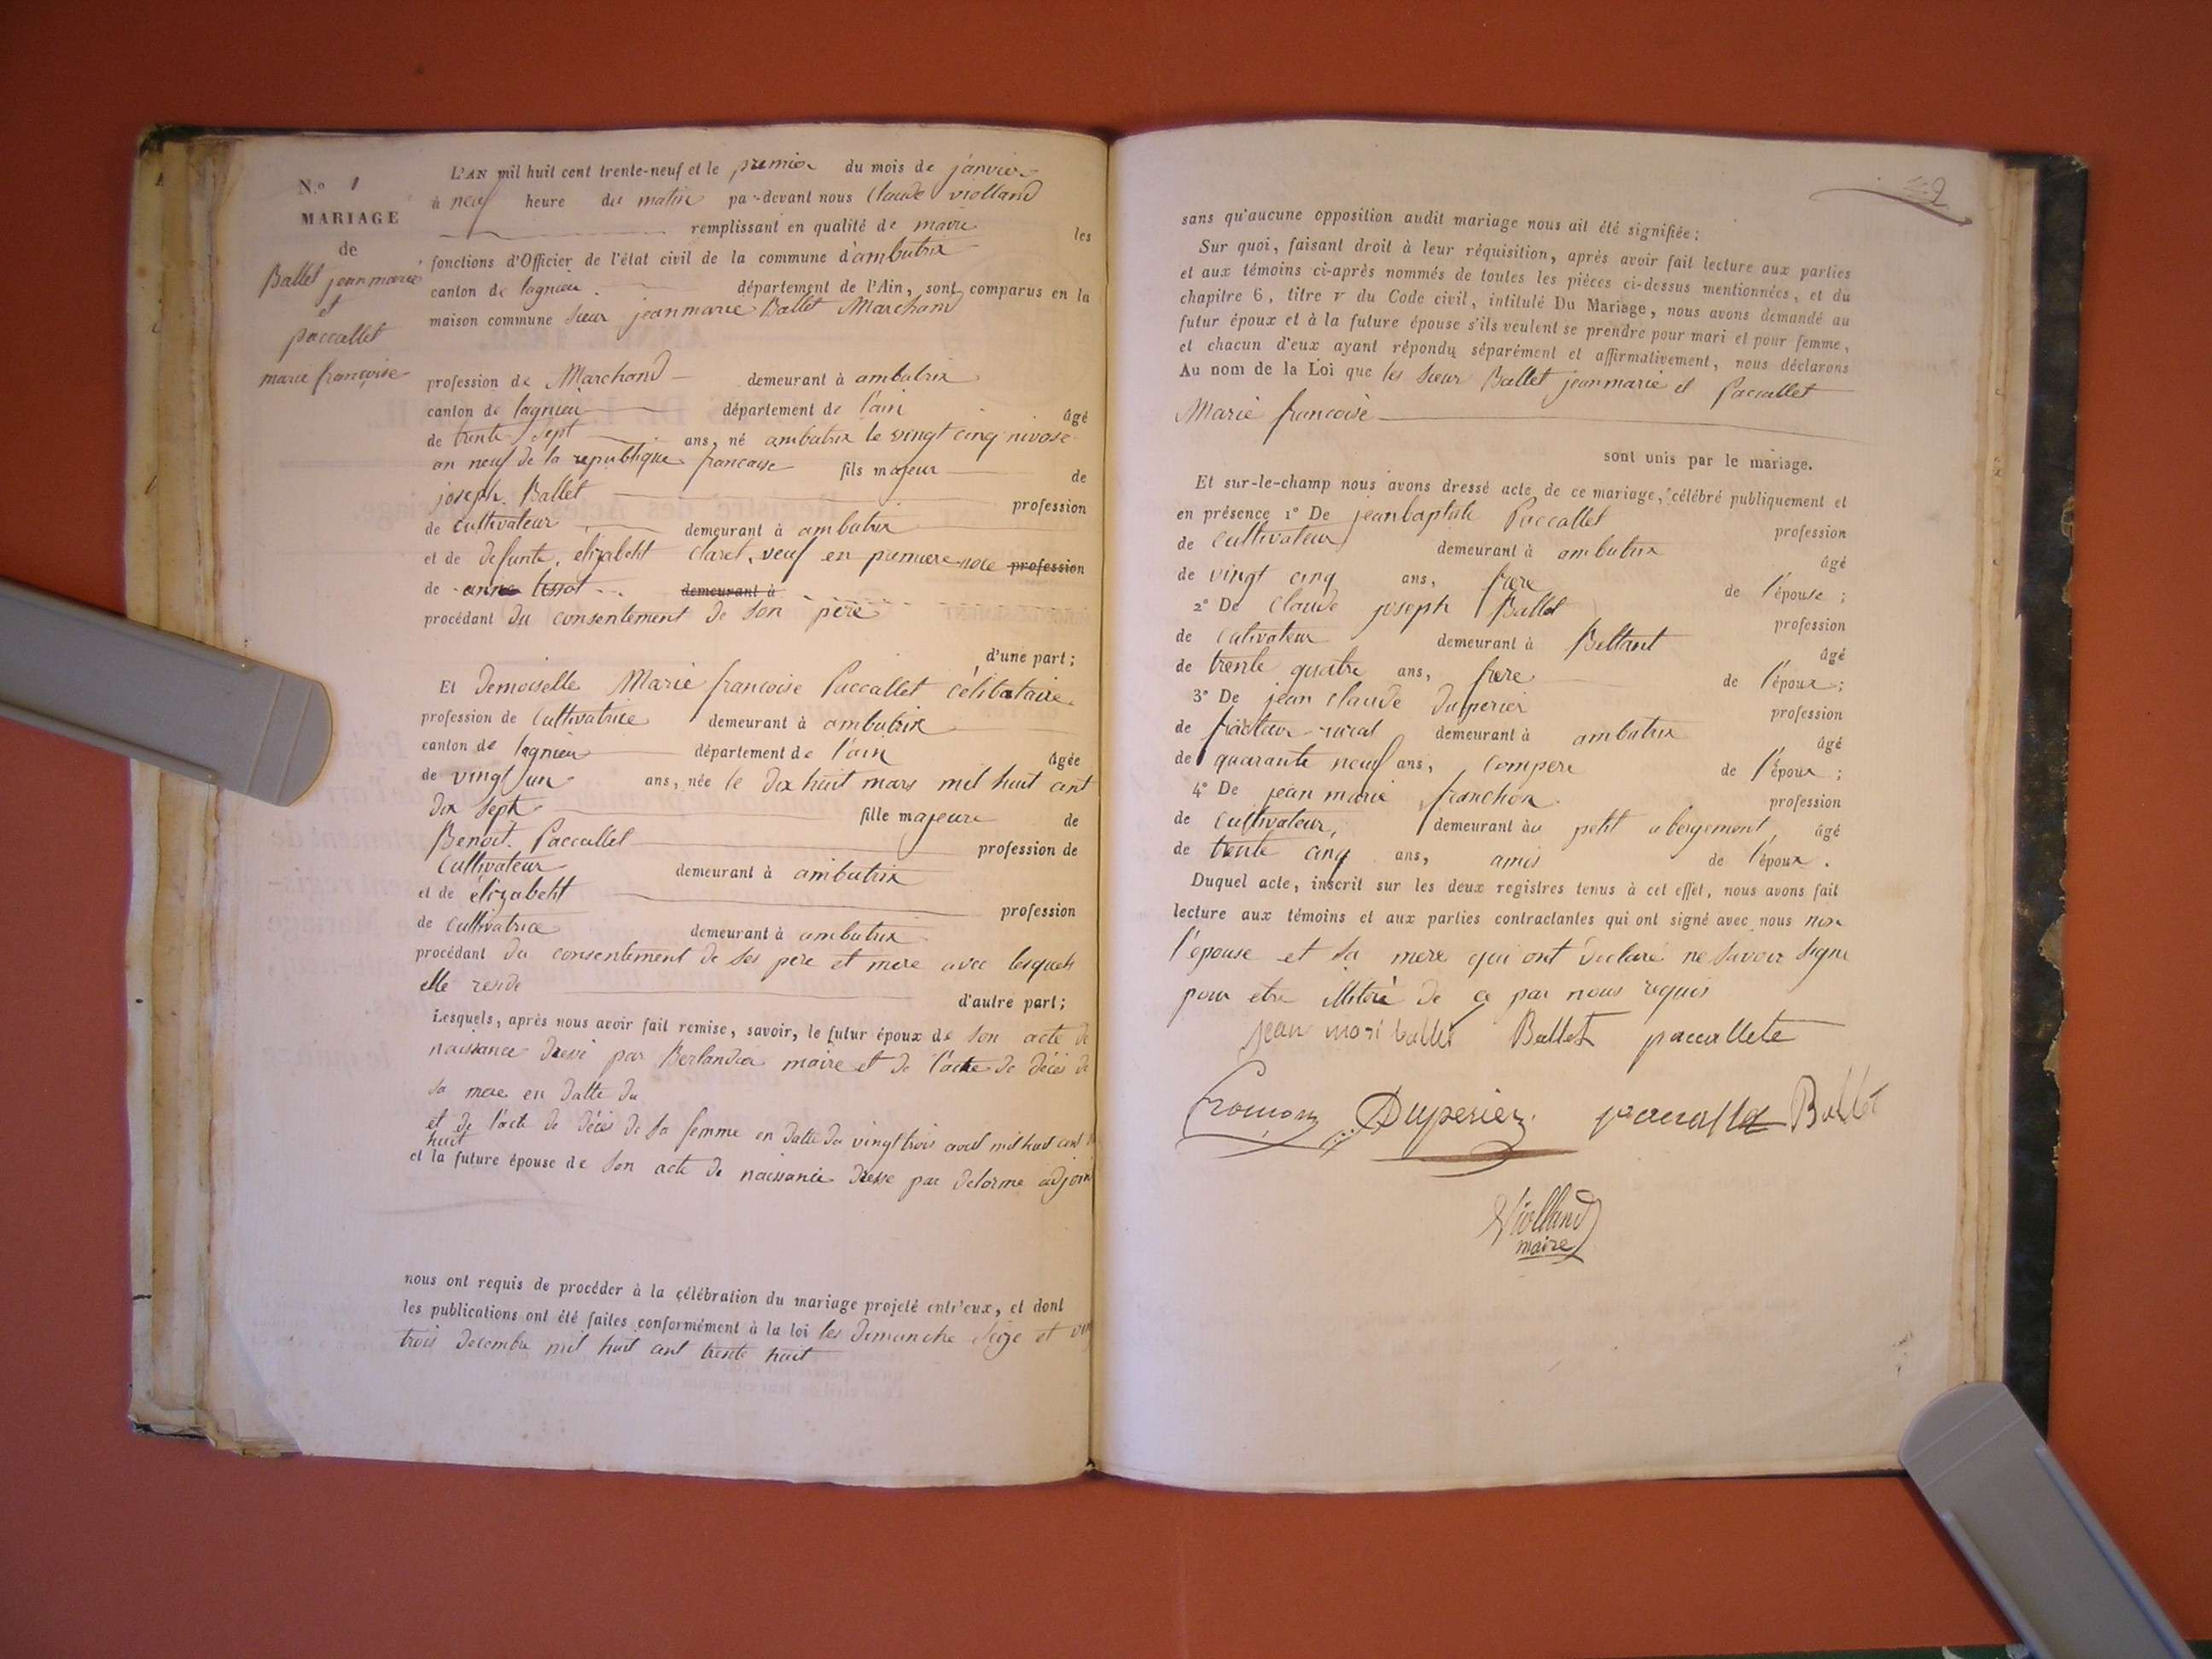 N.o 1
MARIAGE
de
Ballet jean marie
et
paccallet
marie françoise
L'AN mil huit cent trente-neuf et le premier du mois de janvier
à neuf heure du matin par-devant nous Claude violland
remplissant en qualité de maire les
fonctions d'Officier de l'état civil de la commune d'ambutrix
canton de lagnieu département de l'Ain, sont comparus en la
maison commune sieur jean marie Ballet Marchand
profession de Marchand demeurant à ambutrix
canton de lagnieu département de l'ain âgé
de trente sept ans, né ambutrix le vingt cinq nivose
an neuf de la republique francaise fils majeur de
joseph Ballet profession
de cultivateur demeurant à ambutrix
et de defunte, elizabeht claret, veuf en premiere noce profession
de anne demeurant à
procédant du consentement de son père
d'une part;
Et demoiselle Marie francoise Paccallet célibataire
profession de Cultivatrice demeurant à ambutrix
canton de lagnieu département de l'ain âgée
de vingt un ans, née le dix huit mars mil huit cent
dix sept fille majeure de
Benoit Paccallet profession de
Cultivateur demeurant à ambutrix
et de élizabeht profession
de cultivatrice demeurant à ambutrix
procédant du consentement de ses père et mere avec lesquels
elle reside d'autre part;
Lesquels, après nous avoir fait remise, savoir, le futur époux de son acte de
naissance dressé par Berlandier maire et de l'acte de décés de
sa mere en datte du
et de l'acte de décés de sa femme en datte du vingt trois avril mil huit cent
huit
et la future épouse de son acte de naissance dresse par delorme adjoint
nous ont requis de procéder à la célébration du mariage projeté entr'eux, et dont
les publications ont été faites conformément à la loi les dimanche seize et
trois decembre mil huit cent trente huit
sans qu'aucune opposition audit mariage nous ait été signifiée;
Sur quoi, faisant droit à leur réquisition, après avoir fait lecture aux parties
et aux témoins ci-après nommés de toutes les pièces ci-dessus mentionnées, et du
chapitre 6, titre V du Code civil, intitulé Du Mariage, nous avons demandé au
futur époux et à la future épouse s'ils veulent se prendre pour mari et pour femme,
et chacun d'eux ayant répondu séparément et affirmativement, nous déclarons
Au nom de la Loi que les sieur Ballet jean marie et Paccallet
Marie francoise
sont unis par le mariage.
Et sur-le-champ nous avons dressé acte de ce mariage, célébré publiquement et
en présence 1° De jean baptiste Paccallet profession
de Cultivateur demeurant à ambutrix âgé
de vingt cinq ans, frere de l'épouse;
2° De Claude joseph Ballet profession
de Cultivateur demeurant à Bettant âgé
de trente quatre ans, frere de l'époux;
3° De jean Claude Duperier profession
de facteur rural demeurant à ambutrix âgé
de quarante neuf ans, compere de l'époux;
4° De jean marie profession
de Cultivateur, demeurant au petit abergement, âgé
de trente cinq ans, amis de l'époux.
Duquel acte, inscrit sur les deux registres tenus à cet effet, nous avons fait
lecture aux témoins et aux parties contractantes qui ont signé avec nous non
l'épouse et sa mere qui ont declaré ne savoir signe
pour etre illitéré de ce par nous requis
jean mari ballet Ballet paccallete
Duperier Ballet
Violland
maire